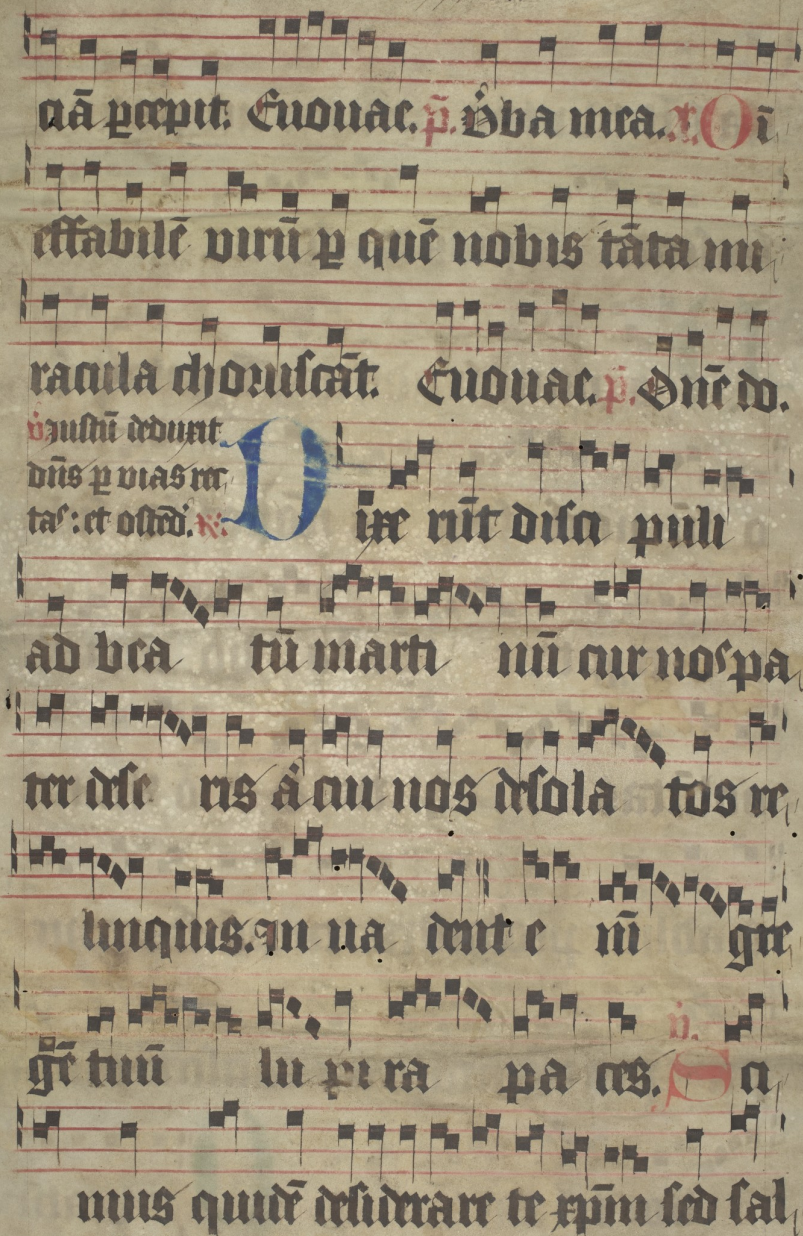 ciā ꝑcepit. Euouae. p̄. v̓ba mea. a. O ī
effabilē virū ꝑ quē nobis tāta mi
racula choruscāt. Euouae. p̄. Dn̄e do.
v̓ Justū deduxit
dn̄s ꝑ vias rec
tas: et ostēd. ℟.
D ixe rūt disci puli
ad bea tū marti nū cur nos pa
ter dese ris a̓ cui nos desola tos re
linquis. In ua dent e nī gre
gē tuū lu pi ra pa ces. v̓. S ci
mus quidē desiderare te xp̄m sed sal